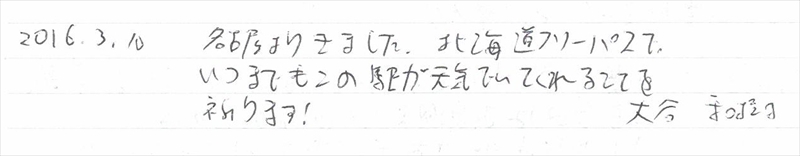 2016.3.10 名古屋よりきました。北海道フリーパスで。
いつまでもこの駅が元気でいてくれることを
祈ります! 大谷